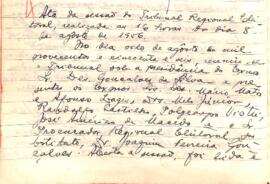 Ata da sessão do Tribunal Regional Elei-
toral, realizada às 16 horas do dia 8
de agosto de 1956.
No dia oito de agosto de mil
novecentos e cincoenta e seis, reuniu-se
o Tribunal sob a presidência do Exmo
Sr. Des. Gonçalves da Silva
sentes os Exmos. Srs. Des. Mário Matos
e Afonso Lages, Drs. Melo Júnior
Randolfo
José Américo de Macedo e o
Procurador Regional Eleitoral
bstituto, Dr. Joaquim Ferreira Gon-
çalves. Aberta a sessão, foi lida e